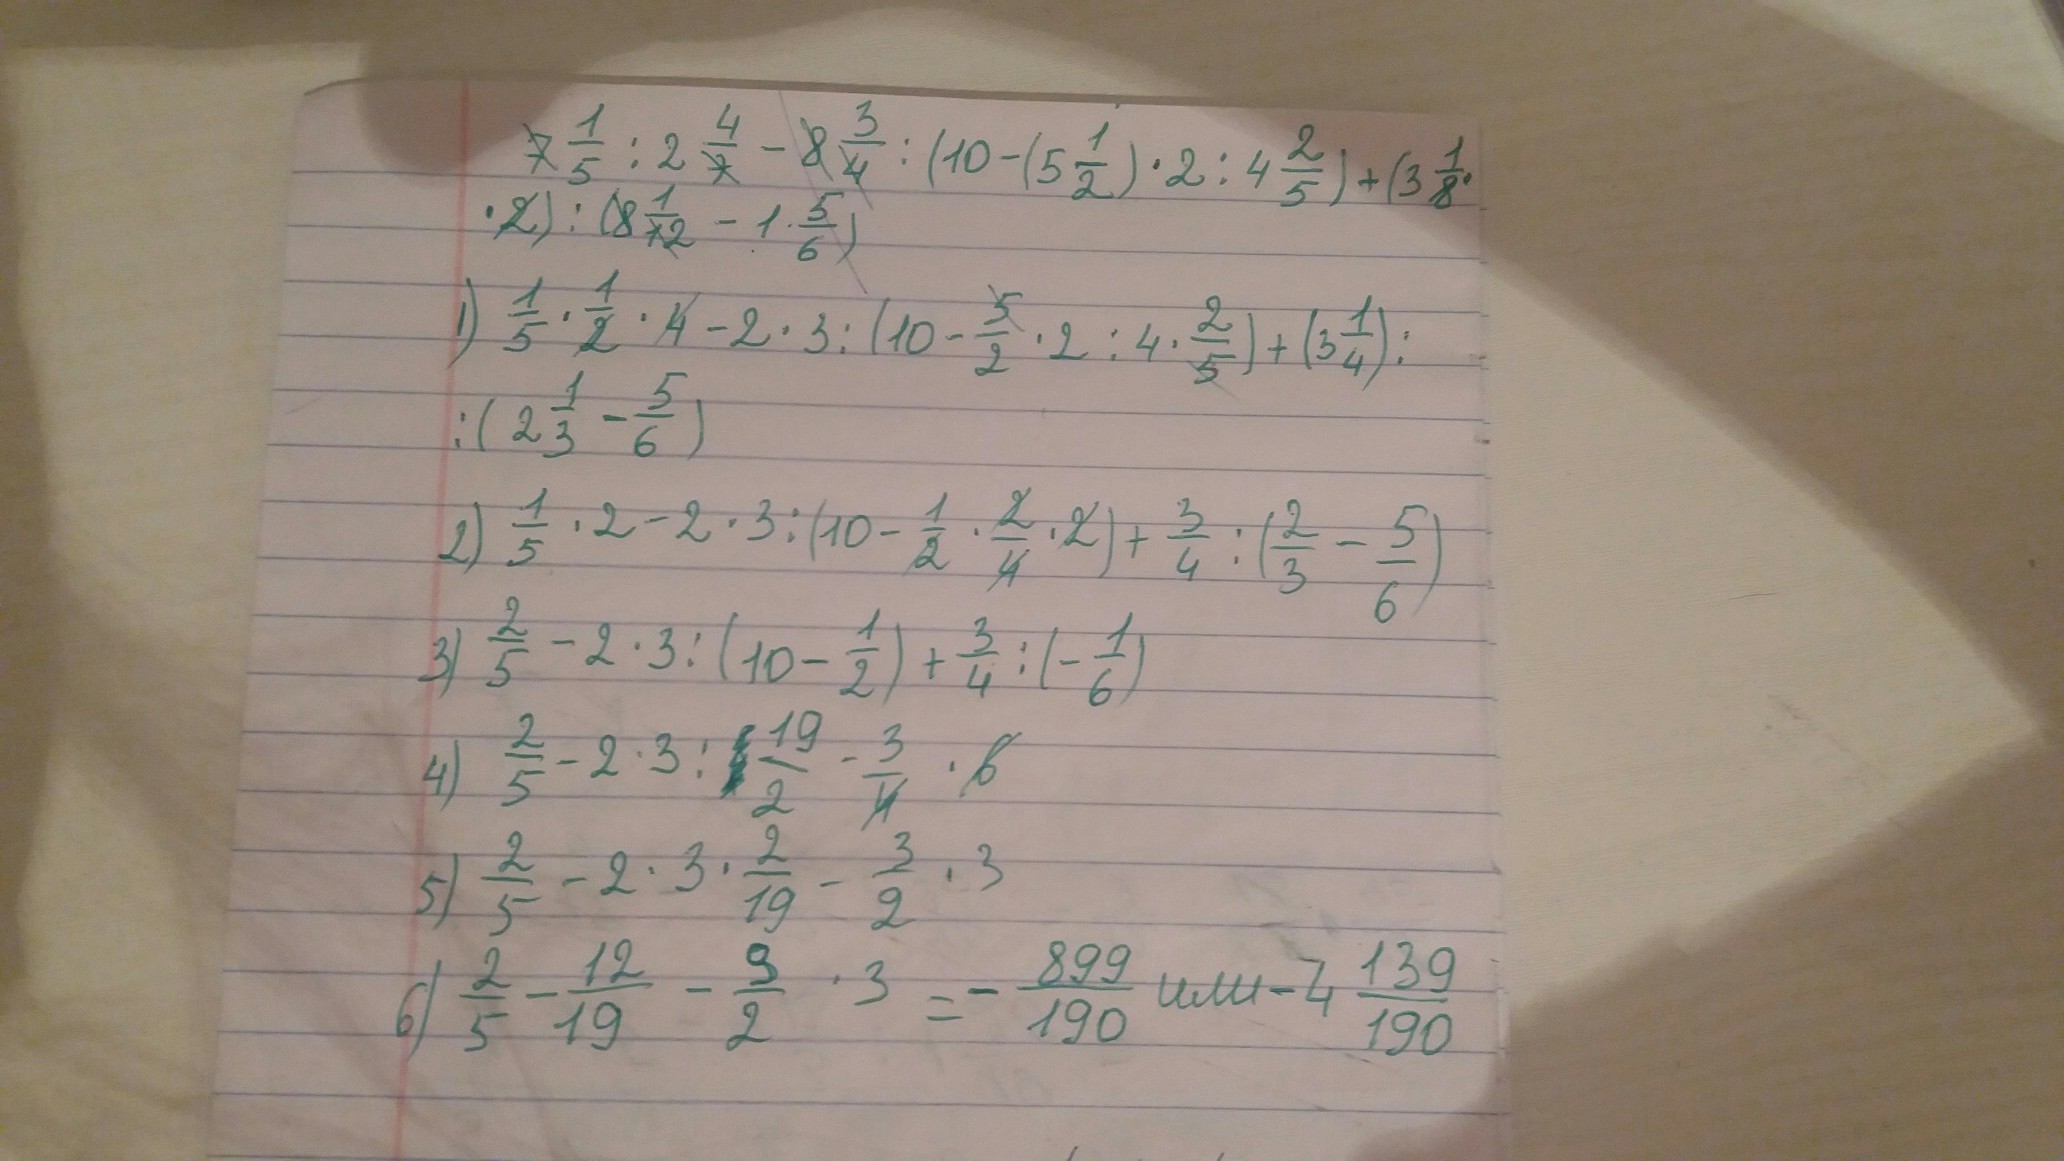 7 1/5 : 2 4/7 - 8 3/4 : (10 - (5 1/2) · 2 : 4 2/5) + (3 1/8 ·
· 2) : (8 1/12 - 1 · 5/6)
1) 1/5 · 1/2 · 4 - 2 · 3 : (10 - 5/2 · 2 : 4 · 2/5) + (3 1/4) :
: (2 1/3 - 5/6)
2) 1/5 · 2 - 2 · 3 : (10 - 1/2 · 2/4 · 2) + 3/4 : (2/3 - 5/6)
3) 2/5 - 2 · 3 : (10 - 1/2) + 3/4 : (- 1/6)
4) 2/5 - 2 · 3 : 19/2 - 3/4 · 6
5) 2/5 - 2 · 3 · 2/19 - 3/2 · 3
6) 2/5 - 12/19 - 3/2 · 3 = - 899/190 или - 4 139/190